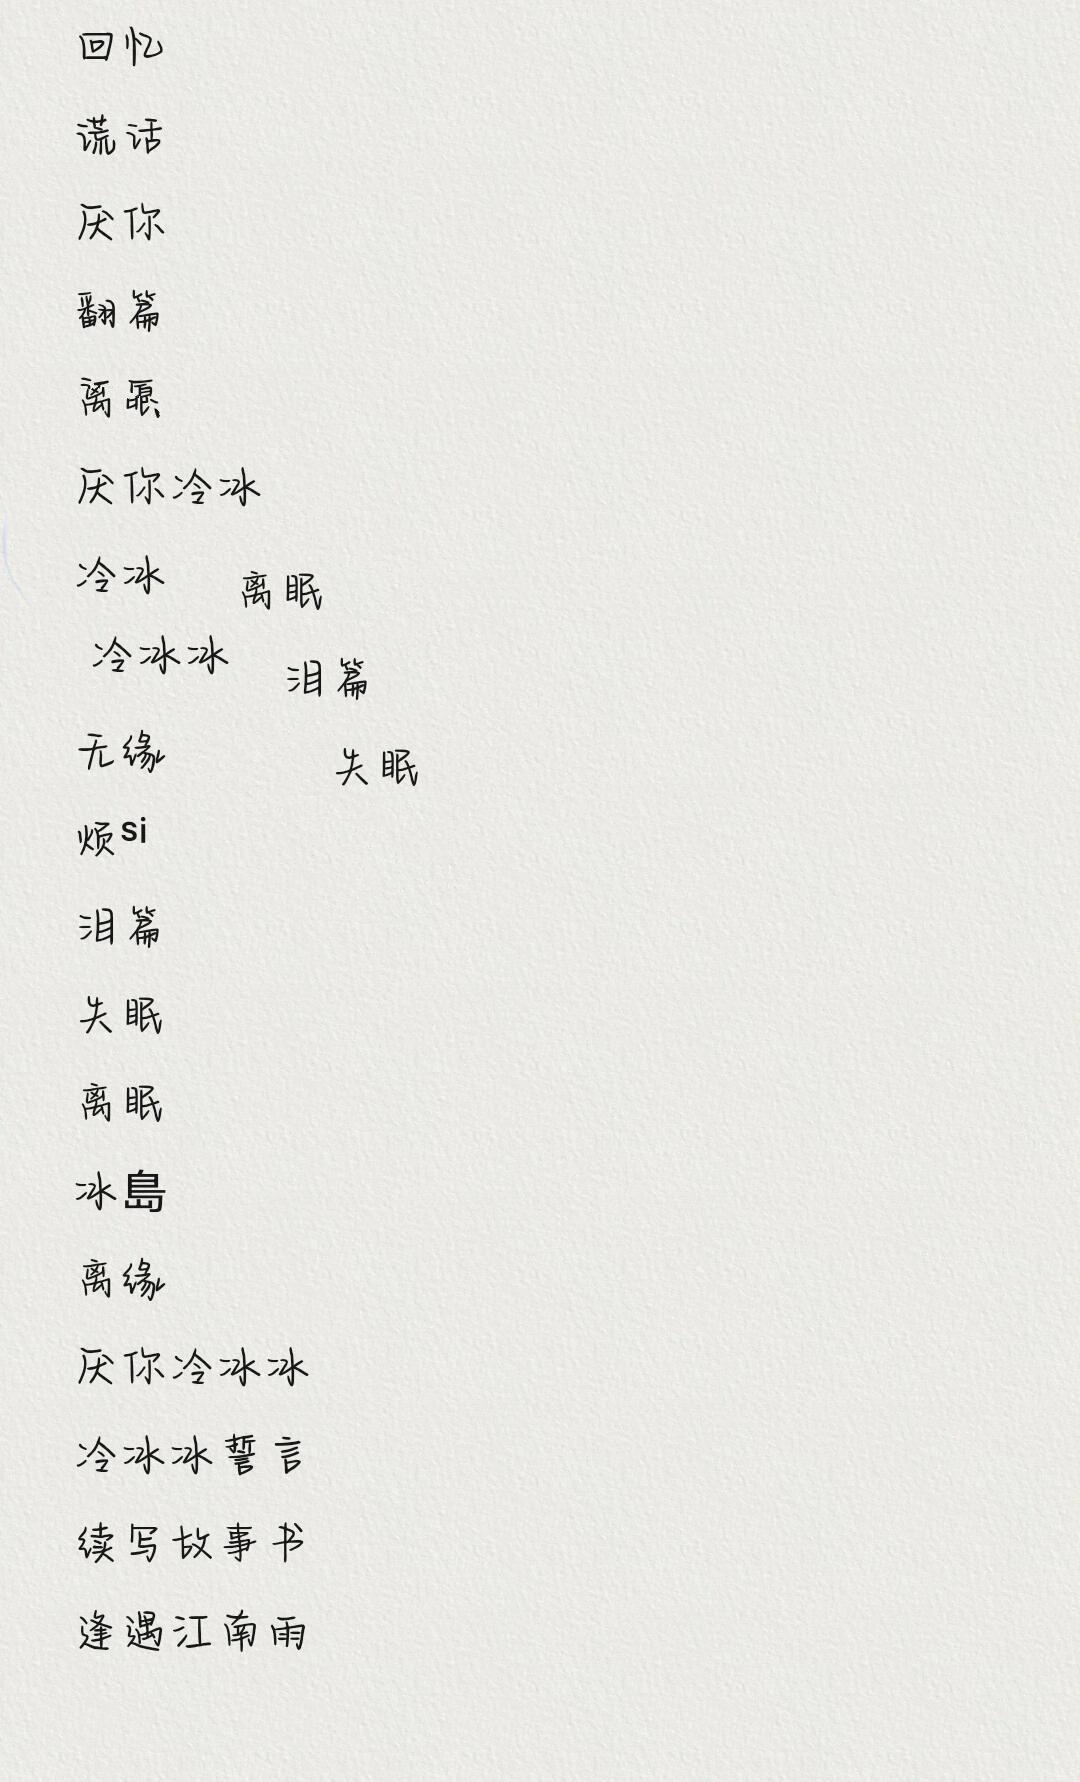 回忆
谎话
厌你
翻篇
离
厌你冷冰
冷冰 离眠
冷冰冰 泪篇
无缘 失眠
烦si
泪篇
失眠
离眠
冰島
离缘
厌你冷冰冰
冷冰冰誓言
续写故事书
逢遇江南雨